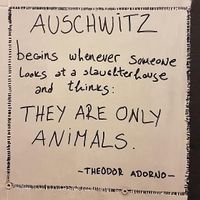 AUSCHWITZ
begins whenever someone
looks at a slaughterhouse
and thinks:
THEY ARE ONLY
ANIMALS.
-THEODOR ADORNO-